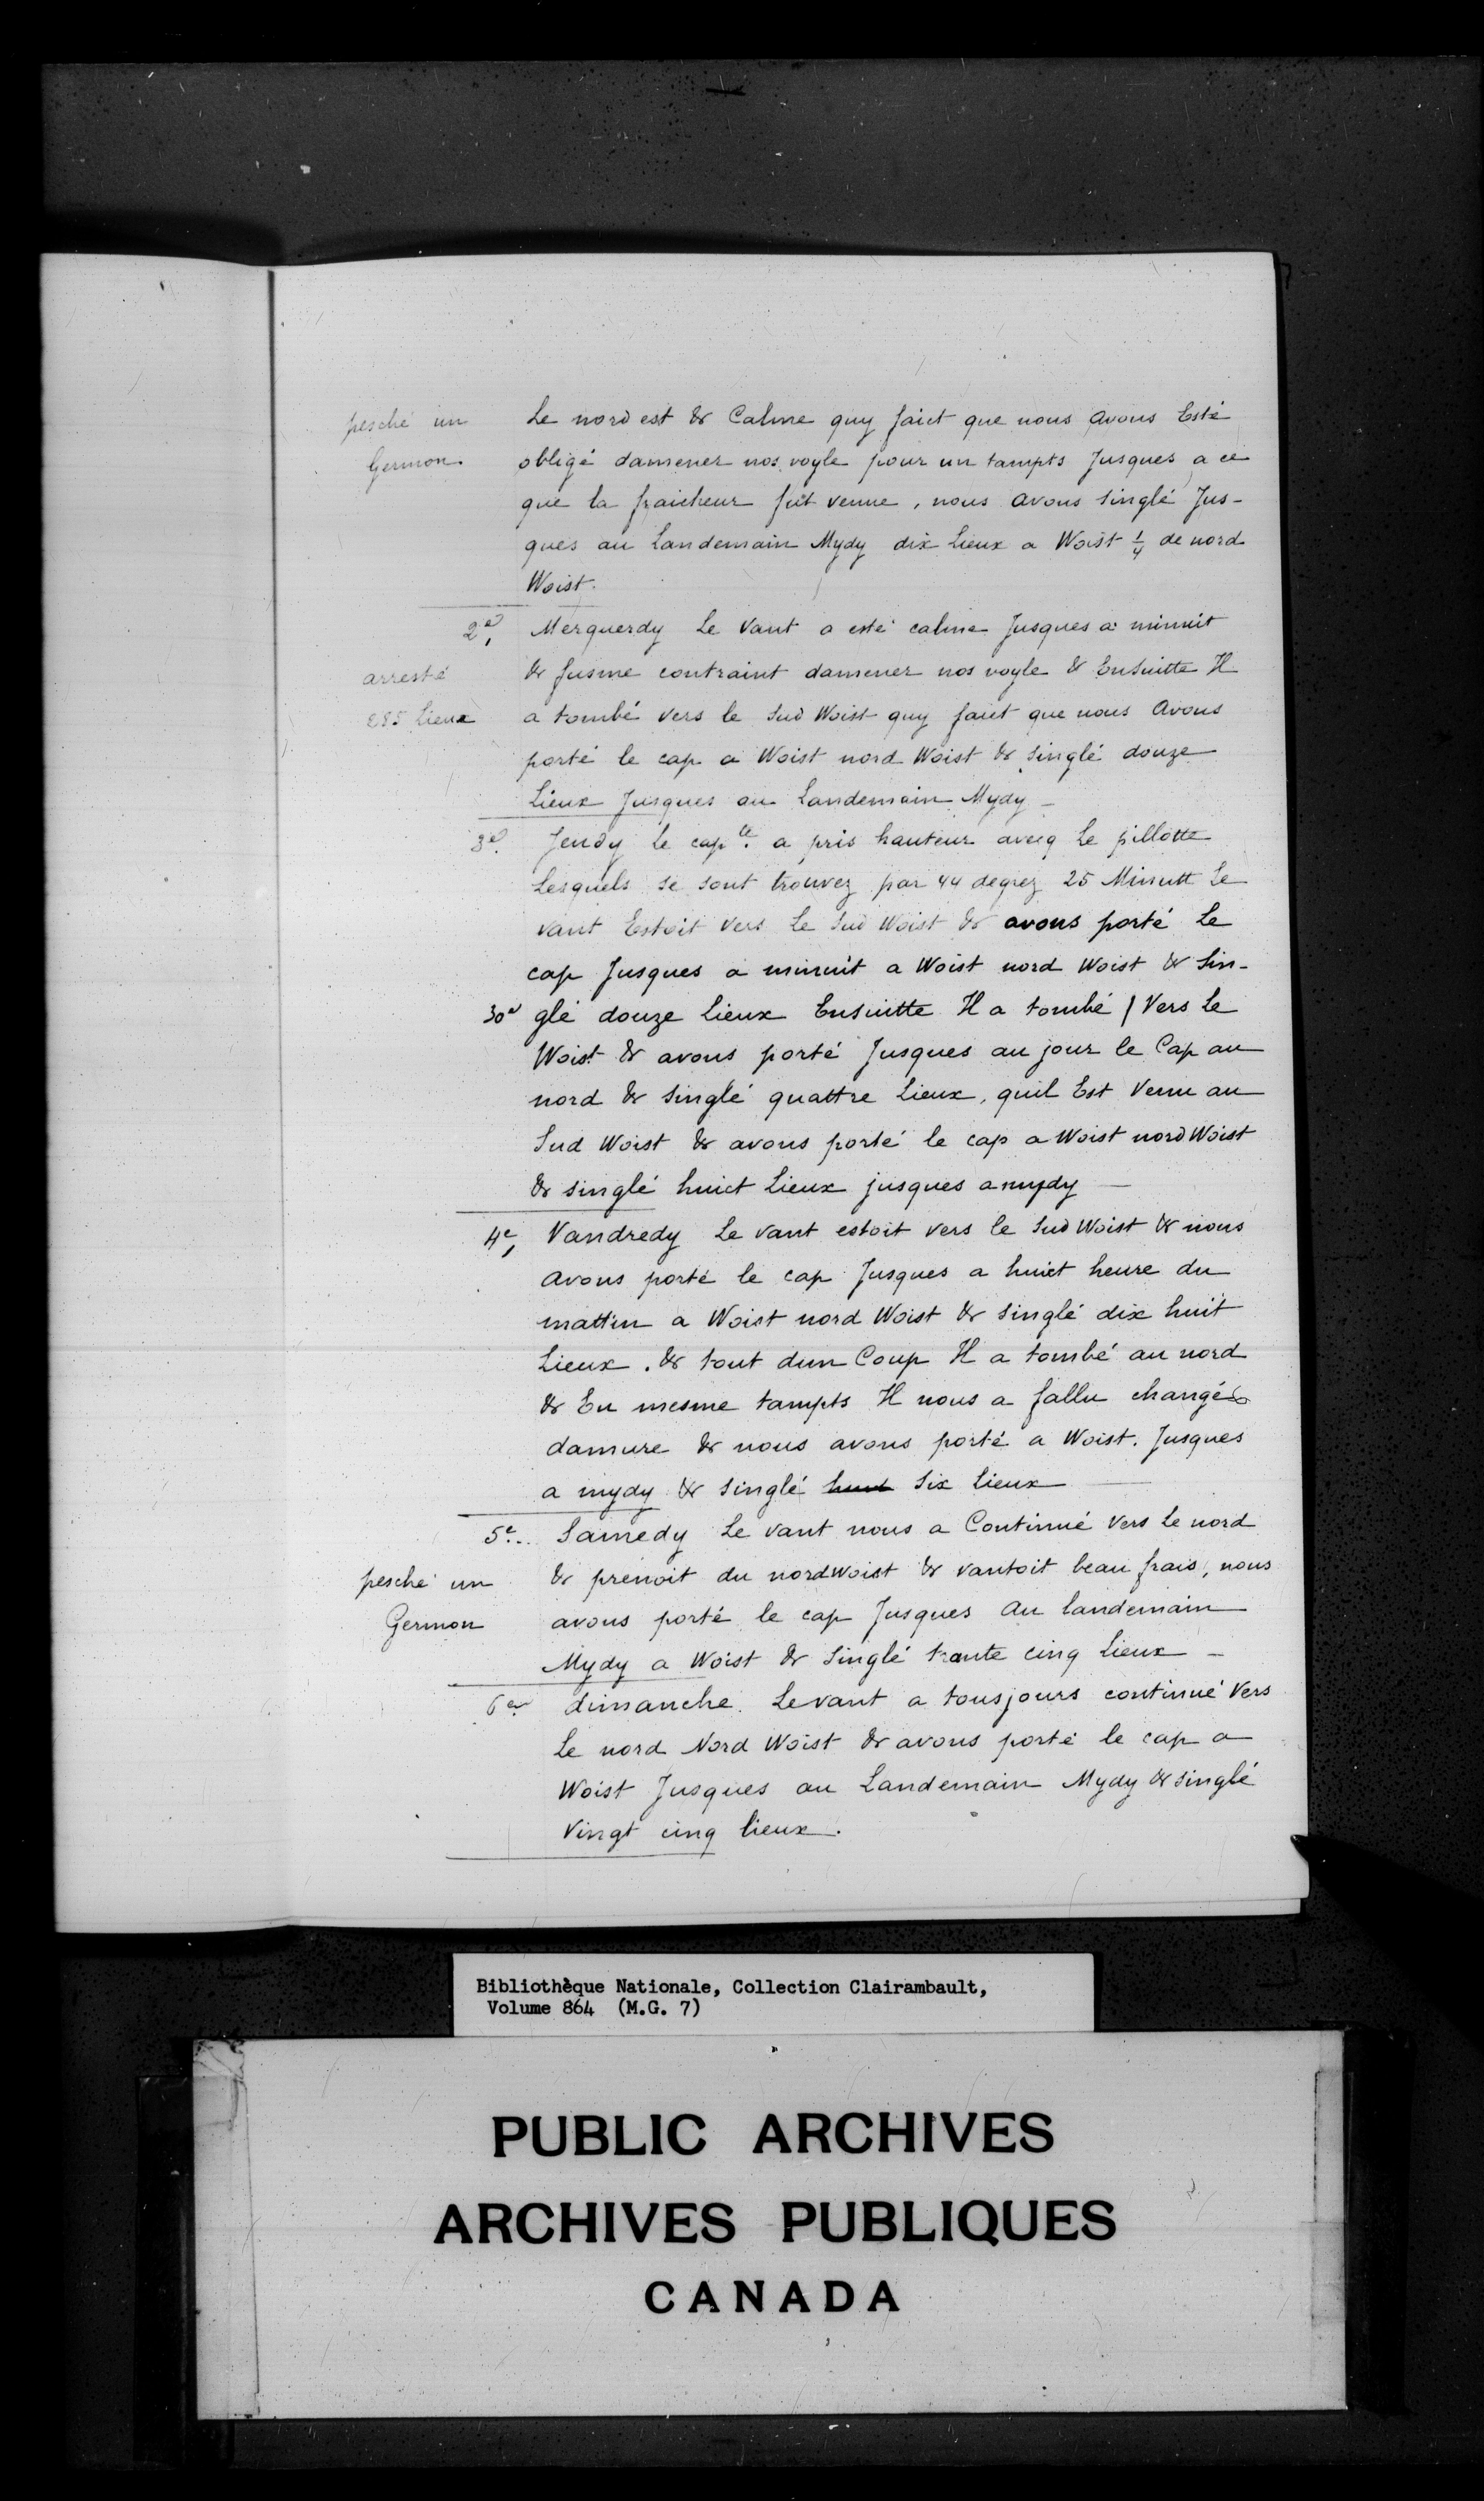 pesché un
Germon.
Le nord est & Calme quy faict que nous avons Esté
obligé damener nos voyle pour un tampts Jusques a ce
que la fraicheur fût venue, nous avons singlé Jus-
ques au Landemain Mydy dix Lieux a Woist 1/4 de nord
Woist.
2e, Merquerdy Le Vant a esté calme Jusques a minuit
arresté
285 lieux
& fusme contraint damener nos voyle & Ensuitte Il
a tombé vers le Sud Woist quy faict que nous Avons
porté le cap a Woist nord Woist & singlé douze
Lieux Jusques au Landemain Mydy -
3e. Jeudy Le cap te. a pris hauteur avecq Le pillotte
Lesquels se sont trouvez par 44 degrez 25 Minutt Le
vant Estoit vers Le Sud Woist & avons porté Le
cap Jusques a minuit a Woist nord Woist & Sin-
30e glé douze Lieux Ensuitte Il a tombé / Vers Le
Woist & avons porté Jusques au jour le Cap au
nord & singlé quattre Lieux, quil Est Venu au
Sud Woist & avons porté le cap a Woist nord Woist
& singlé huict Lieux jusques a mydy -
4e, Vandredy Le vant estoit vers le Sud Woist & nous
avons porté le cap Jusques a huict heure du
mattin a Woist nord Woist & singlé dix huit
Lieux. & tout dun Coup Il a tombé au nord
& En mesme tampts Il nous a fallu changé
damure & nous avons porté a Woist. Jusques
a mydy & singlé huict Six Lieux
5e.. Samedy Le vant nous a Continué vers Le nord
pesché un
Germon
& prenoit du nordwoist & vantoit beau frais, nous
avons porté le cap Jusques Au landemain
Mydy a Woist & Singlé trante cinq Lieux -
6e. dimanche. Le vant a tousjours continué Vers
Le nord Nord Woist & avons porté le cap a
Woist Jusques au Landemain Mydy & singlé
Vingt cinq lieux.
Bibliothèque Nationale, Collection Clairambault,
Volume 864 (M.G. 7)
PUBLIC ARCHIVES
ARCHIVES PUBLIQUES
CANADA